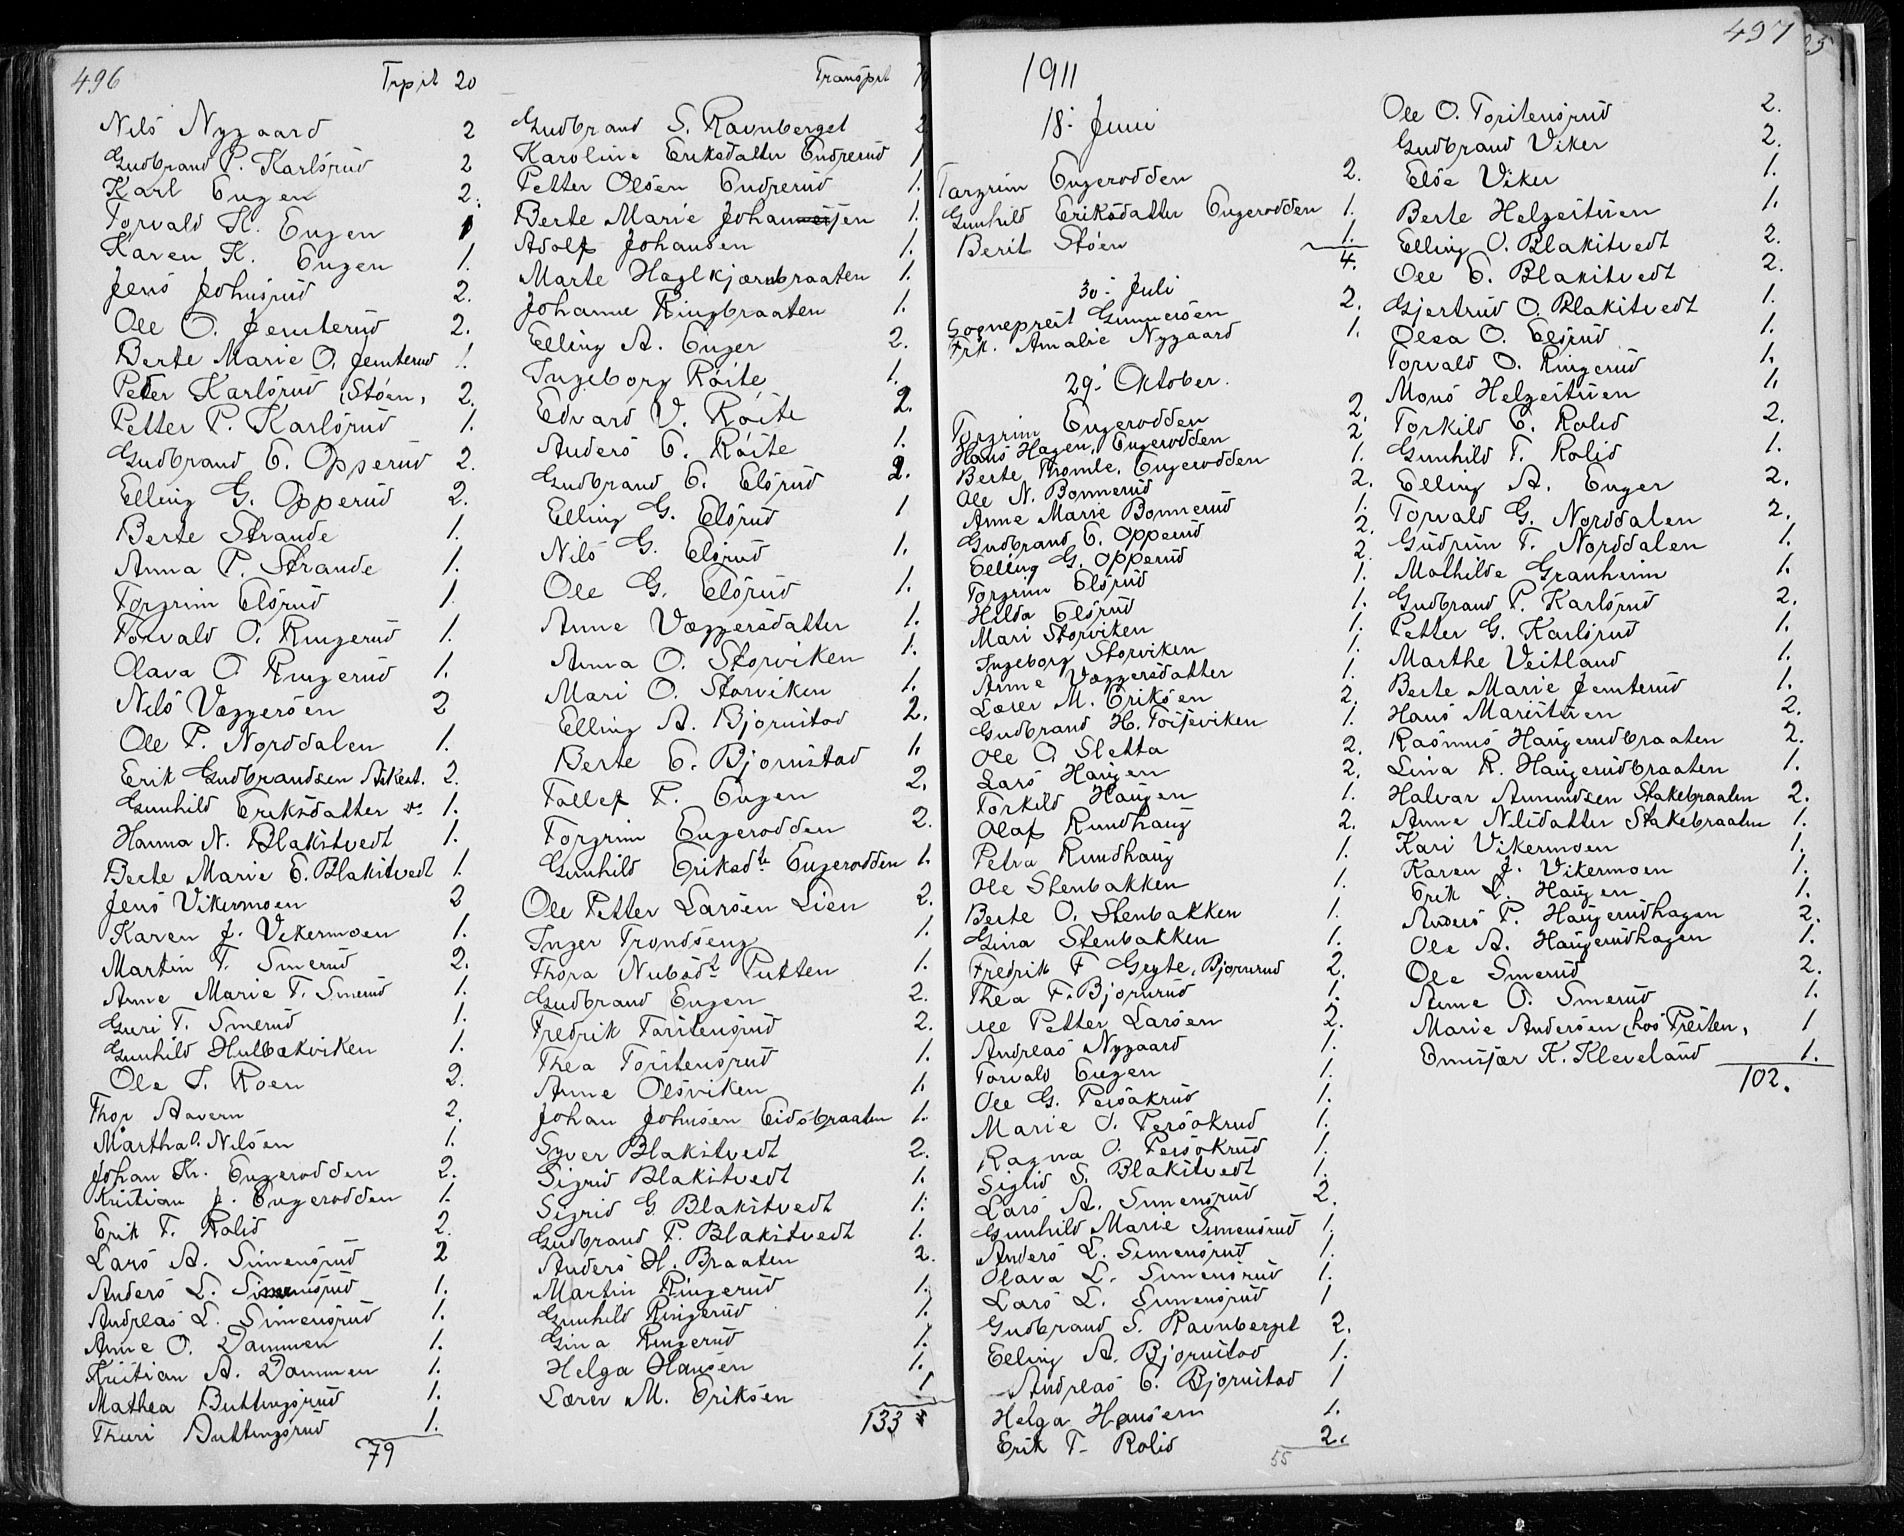 496
Trpst 20
Nils Nygaard 2
Gudbrand P. Karlsrud 2
Karl Engen 2.
Torvald K. Engen 1
Karen K. Engen 1.
Jens Johnsrud 2.
Ole O. Jemterud 2.
Berte Marie O. Jemterud 1.
Peter Karlsrud (Støen, 2.
Petter P. Karlsrud 1.
Gudbrand E. Opperud 2.
Elling G. Opperud 2.
Berte Strande 1.
Anna P. Strande 1.
Torgrim Elsrud 1.
Torvald O. Ringerud 1.
Olava O Ringerud 1.
Nils Væggersen 2
Ole P. Norddalen 1.
Erik Gudbrandsen 2.
Gunhild Eriksdatter do 1.
Hanna N. Blakstvedt 1.
Berte Marie E. Blakstvedt 1.
Jens Vikermoen 2
Karen J. Vikermoen 1.
Martin T. Smerud 2.
Anne Marie T. Smerud 1.
Guri T. Smerud 1.
Gunhild Hulbakviken 1.
Ole J. Roen 2.
Thor Aavern 2.
Martha Nilsen 1.
Johan Kr. Engerodden 2.
Kristian J. Engerodden 1.
Erik T. Rolid 2.
Lars A. Simensrud 2
Anders L. Simensrud 1.
Andreas L. Simensrud 1.
Anne O. Dammen 1.
Kristian A. Dammen 1.
Mathea Buttingsrud 1.
Thuri Buttingsrud 1.
79
Transprt 7
Gudbrand S. Ravnberget 2
Karoline Eriksdatter Endrerud 1
Petter Olsen Endrerud 1.
Berte Marie Johannesen 1.
Adolf Johansen 1.
Marte Haglkjærnbraaten 1.
Johanne Ringbraaten 1.
Elling A. Enger 2.
Ingeborg Røste 1.
Edvard V. Røste 2.
Anders E. Røste 1.
Gudbrand E. Elsrud 2.
Elling G. Elsrud 1
Nils G. Elsrud 1.
Ole G. Elsrud 1.
Anne Væggersdatter 1.
Anna O. Storviken 1.
Mari O. Storviken 1.
Elling A. Bjørnstad 2.
Berte E. Bjørnstad 1.
Tollef P. Engen 2.
Torgrim Engerodden 2.
Gunhild Eriksdtr Engerodden 1.
Ole Petter Larsen Lien 2.
Inger Trondseng 1.
Thora Nubsdt Putten 1.
Gudbrand Engen 2.
Fredrik Torstensrud 2.
Thea Torstensrud 1.
Anne Olsviken 1.
Johan Johnsen Eidsbraaten 1.
Syver Blakstvedt 2.
Sigrid Blakstvedt 1.
Sigrid G Blakstvedt 1.
Gudbrand P. Blakstvedt 1.
Anders H. Braaten 2.
Martin Ringerud 1.
Gunhild Ringerud 1.
Gina Ringerud 1.
Helga Hansen 1.
Lærer M. Eriksen 1
133
497
1911
18: Juni
Torgrim Engerodden 2.
Gunhild Eriksdatter Engerodden 1.
Berit Støen 1.
4.
30: Juli
Sogneprest Gunnersen 2.
Frk. Amalie Nygaard 1.
29: Oktober.
Torgrim Engerodden 2.
Hans Hagen, Engerodden 2
Berte Tromle, Engerodden 1.
Ole N. Bonnerud 2.
Anne Marie Bonnerud 1.
Gudbrand E. Opperud 2.
Elling G. Opperud 2.
Torgrim Elsrud 1.
Hilda Elsrud 1.
Mari Storviken 1.
Ingeborg Storviken 1.
Anne Væggersdatter 1.
Lærer M. Eriksen 2.
Gudbrand H. Tosseviken 1.
Ole O. Sletta 2.
Lars Haugen 2.
Torkild Haugen 1.
Olaf Rundhaug 2.
Petra Rundhaug 1.
Ole Stenbakken 1.
Berte O. Stenbakken 1.
Gina Stenbakken 1.
Fredrik F Gryte, Bjørnrud 2.
Thea F. Bjørnrud 1.
Ole Petter Larsen 2.
Andreas Nygaard 1.
Torvald Engen 1.
Ole G. Persøkrud 1.
Marie O. Persøkrud 1.
Ragna O. Persøkrud 1.
Sigrid S. Blakstvedt 1.
Lars A. Simensrud 2.
Gunhild Marie Simensrud 1.
Anders L. Simensrud 1.
Olava L. Simensrud 1.
Lars L. Simensrud 1
Gudbrand S. Ravnberget 2.
Elling A. Bjørnstad 1.
Andreas E. Bjørnstad 1
Helga Hansen 1.
Erik T. Rolid 2.
55
Ole O. Torstensrud 2.
Gudbrand Viker 2.
Else Viker 1.
Berte Helgestuen 1.
Elling O. Blakstvedt 2.
Ole E. Blakstvedt 2.
Gjertrud O. Blakstvedt 1.
Olea O. Elsrud 1.
Torvald O. Ringerud 1.
Mons Helgestuen 1.
Torkild E. Rolid 2.
Gunhild T. Rolid 1.
Elling A. Enger 2.
Torvald G. Norddalen 2.
Gudrun T. Norddalen 1.
Mathilde Granheim 1.
Gudbrand P. Karlsrud 2.
Petter G. Karlsrud 1.
Marthe Veitland 1.
Berte Marie Jemterud 1.
Hans Mariestuen 2.
Rasmus Haugerudbraaten 2.
Lina R. Haugerudbraaten 1.
Halvor Amundsen Stakebraaten 2.
Anne Nilsdatter Stakebraaten 1.
Kari Vikermoen 1.
Karen J. Vikermoen 1.
Erik L. Haugen 1.
Anders P. Haugerudhagen 2.
Ole A. Haugerudhagen 1.
Ole Smerud 2.
Anne O. Smerud 1.
Marie Andersen (hos Presten, 1
Emisjær K. Kleveland 1.
102.